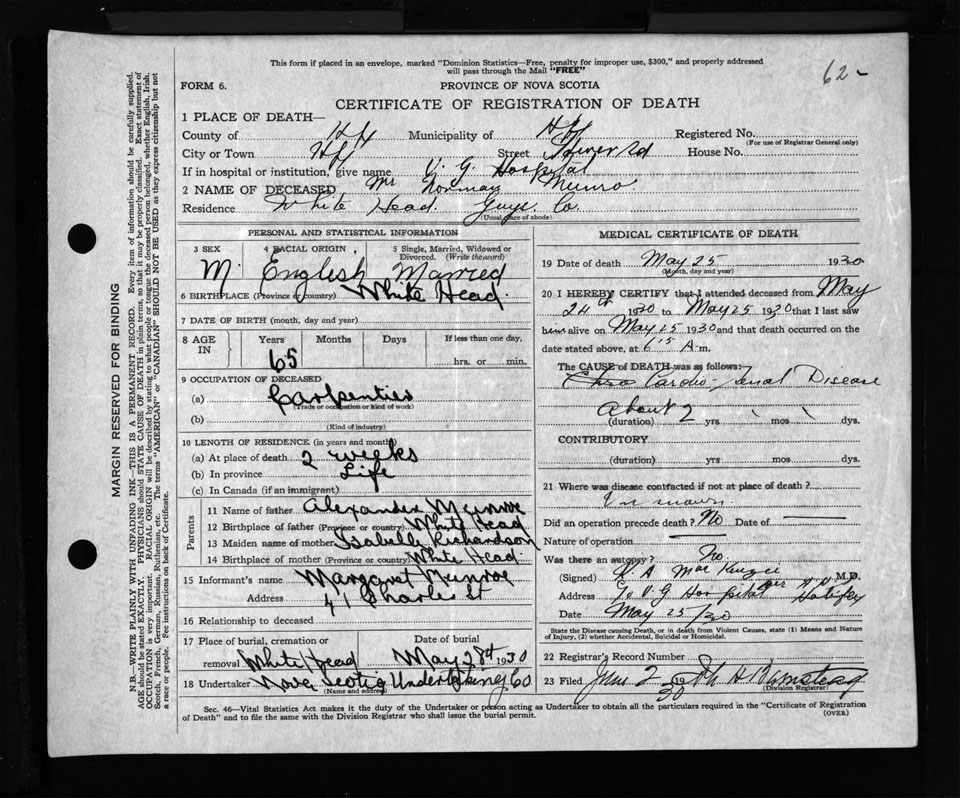 This form if placed in an envelope, marked "Dominion Statistics—Free, penalty for improper use, $300," and properly addressed
will pass through the Mail "FREE"
62-
FORM 6.
PROVINCE OF NOVA SCOTIA
CERTIFICATE OF REGISTRATION OF DEATH
1 PLACE OF DEATH—
County of Hfx Municipality of Hfx Registered No.
(For use of Registrar General only)
City or Town Hfx Street Tower Rd House No.
If in hospital or institution, give name V. G. Hospital
2 NAME OF DECEASED Mr Norman Munro
Residence White Head. Guys. Co.
(Usual place of abode)
PERSONAL AND STATISTICAL INFORMATION
3 SEX 4 RACIAL ORIGIN 5 Single, Married, Widowed or
Divorced. (Write the word)
M. English Married
6 BIRTHPLACE (Province or country) White Head.
7 DATE OF BIRTH (month, day and year)
8 AGE IN Years Months Days If less than one day,
65 hrs. or min.
9 OCCUPATION OF DECEASED
(a) Carpenter
(Trade or occupation or kind of work)
(b)
(Kind of industry)
10 LENGTH OF RESIDENCE (in years and months)
(a) At place of death 2 weeks
(b) In province Life
(c) In Canada (if an immigrant)
Parents
11 Name of father Alexander Munroe
12 Birthplace of father (Province or country) White Head
13 Maiden name of mother Isabelle Richardson
14 Birthplace of mother (Province or country) White Head.
15 Informant's name Margaret Munroe
Address 41 Charles St
16 Relationship to deceased
17 Place of burial, cremation or Date of burial
removal White Head May 28th 1930
18 Undertaker Nova Scotia Undertaking Co
(Name and address)
MEDICAL CERTIFICATE OF DEATH
19 Date of death May 25 1930
(Month, day and year)
20 I HEREBY CERTIFY that I attended deceased from May
24th 1930 to May 25 1930 that I last saw
him alive on May 25 1930 and that death occurred on the
date stated above, at 6 15 A.m.
The CAUSE of DEATH was as follows:
Cardio-renal Disease
About 2
(duration) yrs mos dys.
CONTRIBUTORY
(duration) yrs mos dys.
21 Where was disease contracted if not at place of death?
Did an operation precede death? No Date of
Nature of operation
Was there an autopsy? No.
(Signed) MacKenzie M.D.
Address V G Hospital Halifax
Date May 25/30
State the Disease causing Death, or in death from Violent Causes, state (1) Means and
Nature of Injury, (2) whether Accidental, Suicidal or Homicidal.
22 Registrar's Record Number
23 Filed June 2 30
(Division Registrar)
Sec. 46—Vital Statistics Act makes it the duty of the Undertaker or person acting as Undertaker to obtain all the particulars required in the "Certificate of Registration
of Death" and to file the same with the Division Registrar who shall issue the burial permit.
(OVER)
MARGIN RESERVED FOR BINDING
N.B.—WRITE PLAINLY WITH UNFADING INK—THIS IS A PERMANENT RECORD. Every item of information should be carefully supplied.
AGE should be stated EXACTLY. PHYSICIANS should STATE CAUSE OF DEATH in plain terms, so that it may be properly classified. Exact statement of
OCCUPATION is very important. RACIAL ORIGIN will be described by stating to what people or tongue the deceased person belonged, whether English, Irish,
Scotch, French, German, Russian, Ruthenian, etc. The terms "AMERICAN" or "CANADIAN" SHOULD NOT BE USED as they express citizenship but not
a race or people. See instructions on back of Certificate.